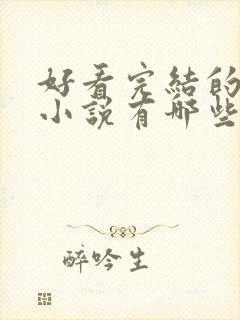 好看完结的
小说有哪些
醉吟生